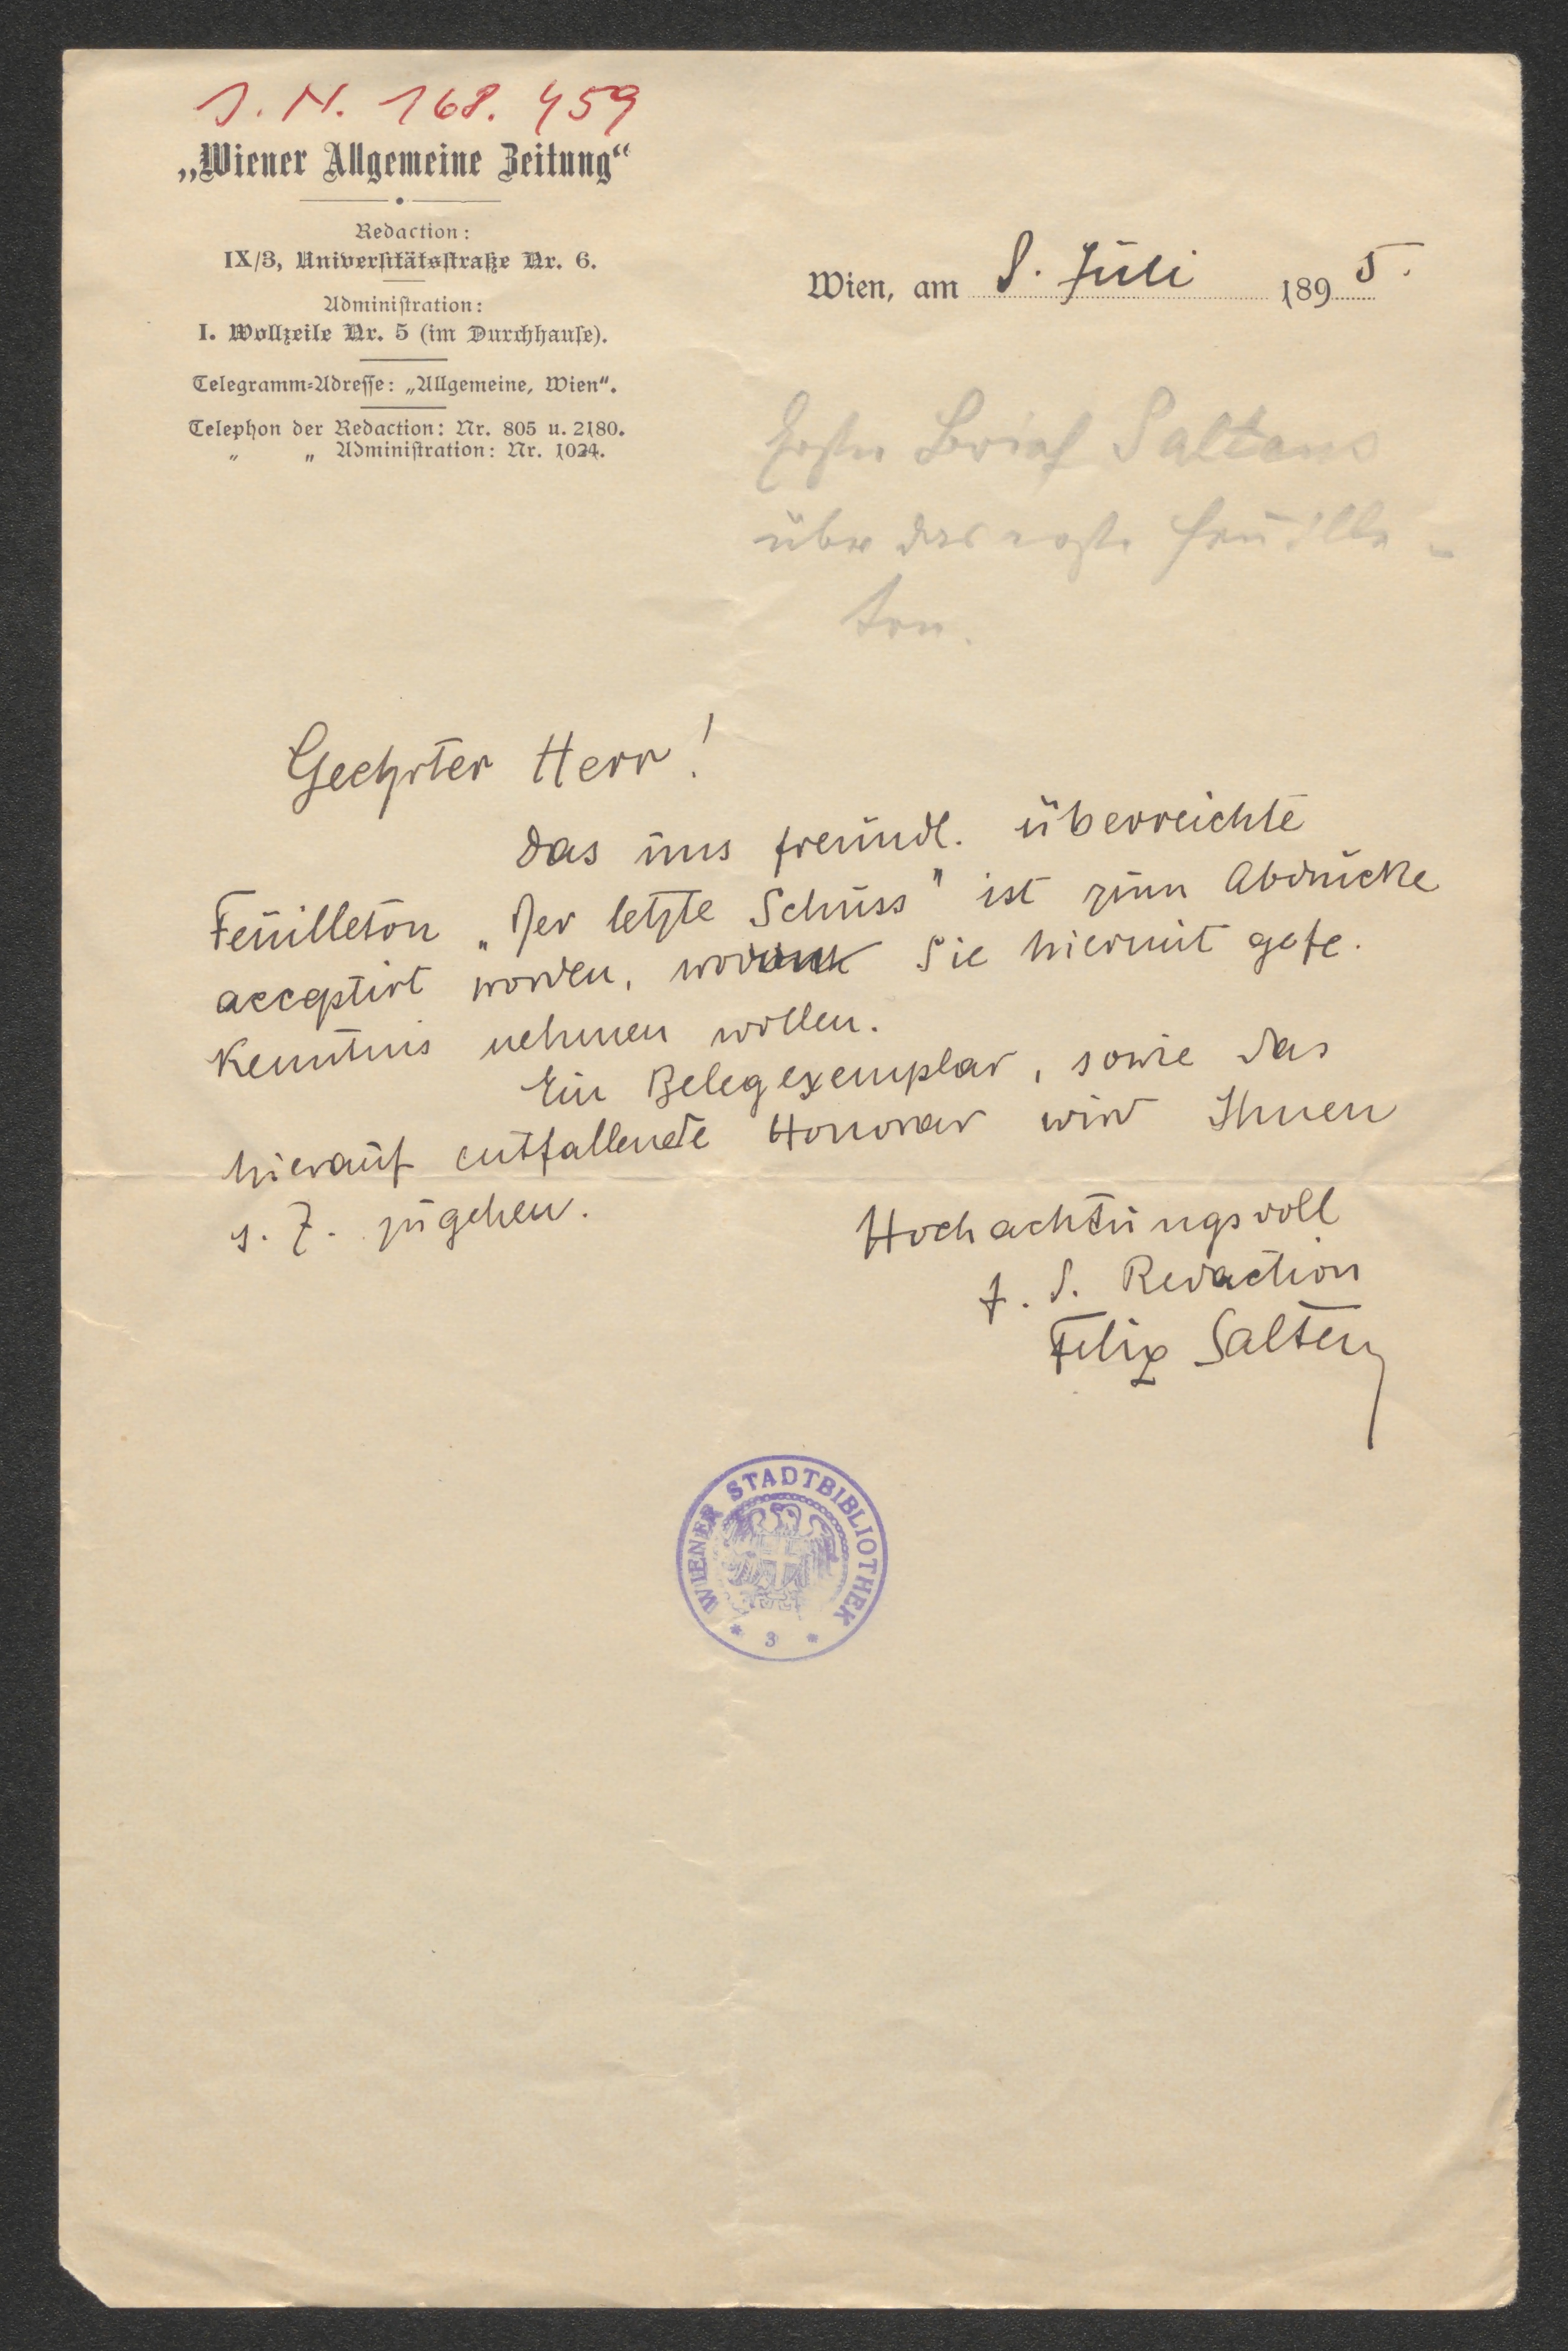 J. N. 168.459
„Wiener Allgemeine Zeitung“
Redaction:
IX/3, Universitätsstraße Nr. 6.
Administration:
I. Wollzeile Nr. 5 (im Durchhause).
Telegramm-Adresse: „Allgemeine, Wien“.
Telephon der Redaction: Nr. 805 u. 2180.
„ „ Administration: Nr. 1024.
Wien, am 8. Juli 1895.
Erster Brief Saltens
über das erste Feuille-
ton.
Geehrter Herr!
Das uns freundl. überreichte
Feuilleton „Der letzte Schuss" ist zum Abdrucke
acceptirt worden, Sie hiermit gefe.
Kenntnis nehmen wollen.
Ein Belegexemplar, sowie das
hierauf entfallende Honorar wird Ihnen
s. Z. zugehen.
Hochachtungsvoll
f. d. Redaction
Felix Salten
WIENER STADTBIBLIOTHEK
* 3 *